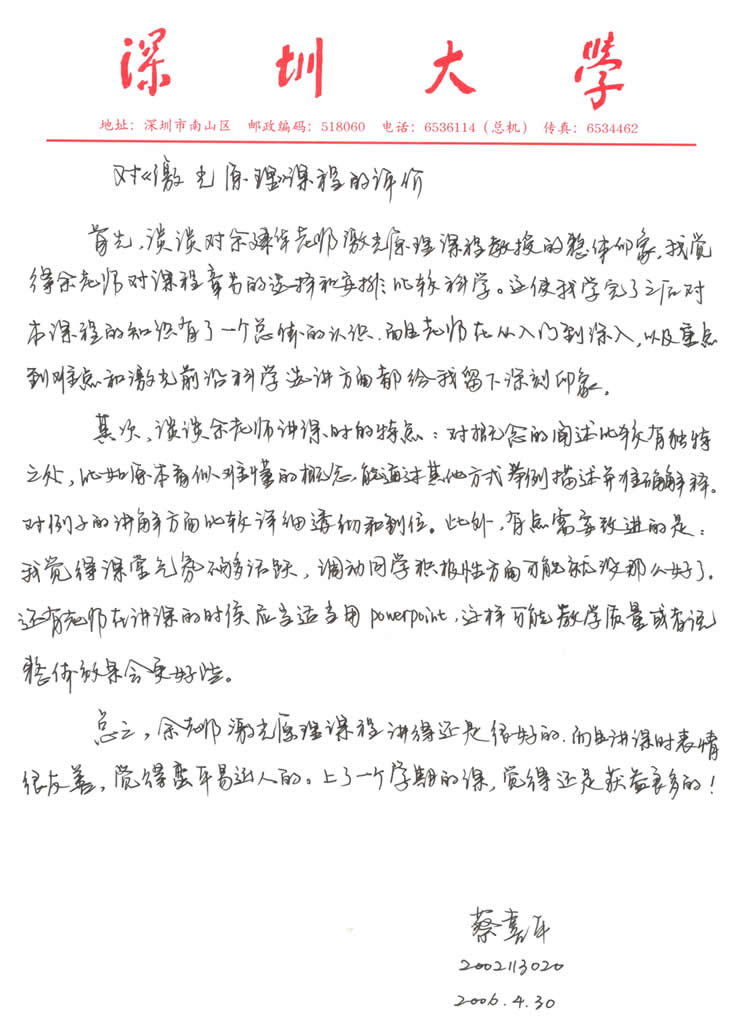 深圳大学
地址：深圳市南山区 邮政编码：518060 电话：6536114（总机） 传真：6534462
对《激光原理》课程的评价
首先，谈谈对余建华老师激光原理课程教授的整体印象。我觉
得余老师对课程章节的选择和安排比较科学。这使我学完了之后对
本课程的知识有了一个总体的认识。而且老师在从入门到深入，以及重点
到难点和激光前沿科学选讲方面都给我留下深刻印象。
其次，谈谈余老师讲课时的特点：对概念的阐述比较有独特
之处，比如原本看似难懂的概念，能通过其他方式举例描述并准确解释。
对例子的讲解方面比较详细透彻和到位。此外，有点需要改进的是：
我觉得课堂气氛不够活跃，调动同学积极性方面可能就没那么好了。
还有老师在讲课的时候应当适当用powerpoint，这样可能教学质量或者说
整体效果会更好些。
总之，余老师激光原理课程讲得还是很好的，而且讲课时表情
很友善，觉得蛮平易近人的。上了一个学期的课，觉得还是获益良多的！
蔡喜
2002113020
2006.4.30